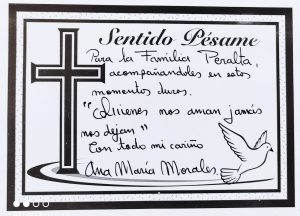 Sentido Pésame
Para la Familia Peralta,
acompañandoles en estos
momentos duros.
"Quienes nos aman jamás
nos dejan"
Con todo mi cariño
Ana María Morales.